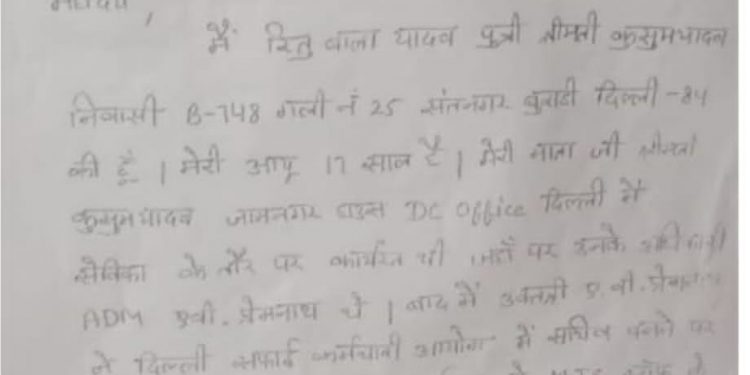 महोदय,
मैं रितु बाला यादव पुत्री श्रीमती कुसुम यादव
निवासी B-748 गली नं 25 संतनगर बुराडी दिल्ली -84
की हूँ । मेरी आयू 17 साल है । मेरी माता जी श्रीमती
कुसुम यादव जामनगर हाउस DC Office दिल्ली में
सेविका के तौर पर कार्यरत थी जहाँ पर उनके अधिकारी
ADM एवी. प्रेमनाथ थे । बाद में ए.वी. प्रेमनाथ
ने दिल्ली सफाई कर्मचारी आयोग में सचिव बनने पर